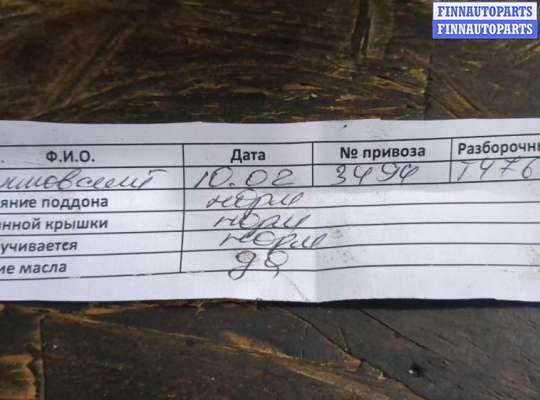 FINNAUTOPARTS
FINNAUTOPARTS
Ф.И.О. Дата № привоза Разборочн
10.02 3494 Т476
яние поддона норм
анной крышки норм
учивается норм
ие масла да